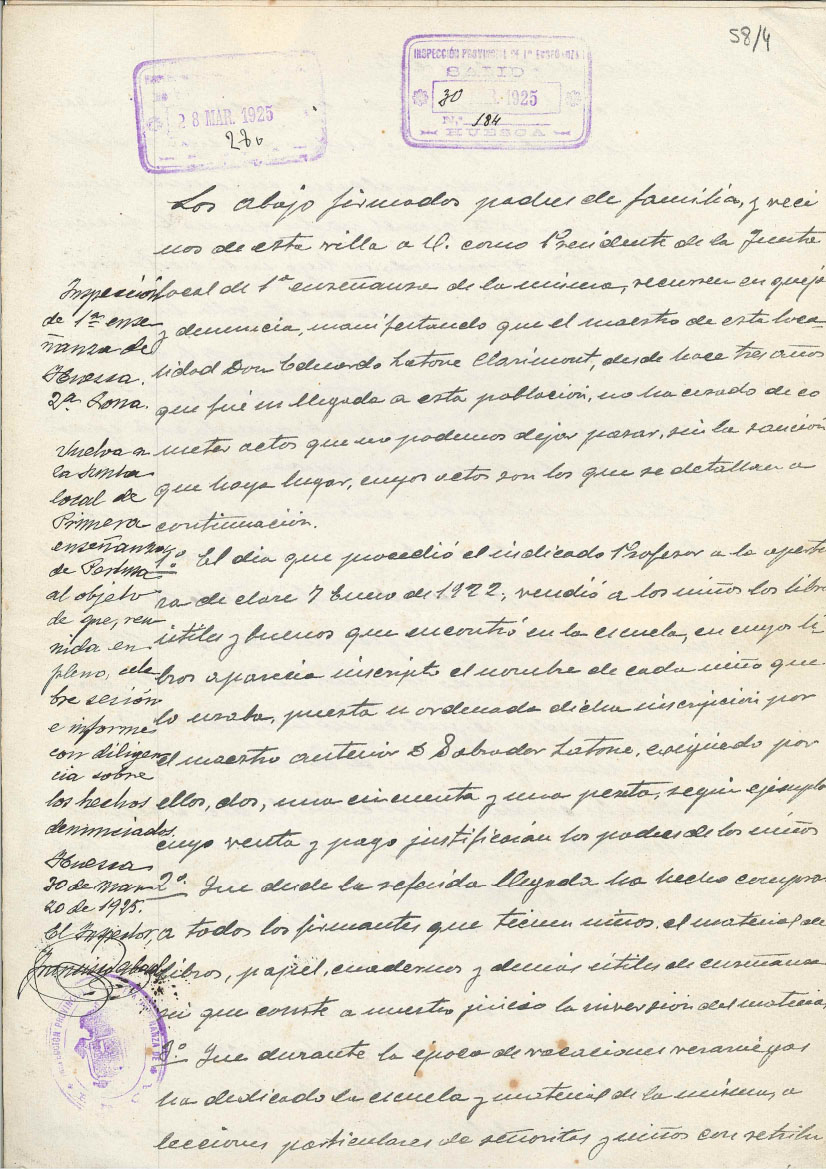 58/4
28 MAR. 1925
280
INSPECCIÓN PROVINCIAL DE 1ª ENSEÑANZA
SALIDA
30 1925
N.º 184
HUESCA
Los abajo firmados padres de familia, y veci
nos de esta villa a V. como Presidente de la Junta
local de 1ª enseñanza de la misma, recurren en queja
y denuncia, manifestando que el maestro de esta loca-
lidad Don Eduardo Latorre Clarimont, desde hace tres años
que fué su llegada a esta población, no ha cesado de co
meter actos que no podemos dejar pasar, sin la sanción
que haya lugar, cuyos actos son los que se detallan a
continuación.
1º. El dia que procedió el indicado Profesor a la apertu
ra de clase 7 Enero de 1922, vendió a los niños los libro
útiles y buenos que encontró en la escuela, en cuyos li
bros aparecia inscripto el nombre de cada niño que
lo usaba, puesta u ordenada dicha inscripción por
el maestro anterior D Salvador Latorre, exigiendo por
ellos, dos, una cincuenta y una peseta, según ejemplo
cuyo venta y pago justifición los padres de los niños
2º. Que desde la referida llegada ha hecho comprar
a todos los firmantes que tienen niños, el material de
libros, papel, cuadernos y demás útiles de enseñanza
sin que conste a nuestro juicio la inversión del material
3º. Que durante la época de vacaciones veraniegas
ha dedicado la escuela y material de la misma, a
lecciones particulares de señoritas y niños con retribu
Inspección
de 1ª ense-
ñanza de
Huesca.
2ª. Zona.
Vuelva a
la Junta
local de
Primera
enseñanza
de
al objeto
de que, reu
nida en
pleno, cele
bre sesión
e informe
con diligen
cia sobre
los hechos
denunciados.
Huesca
30 de mar-
zo de 1925.
El Inspector,